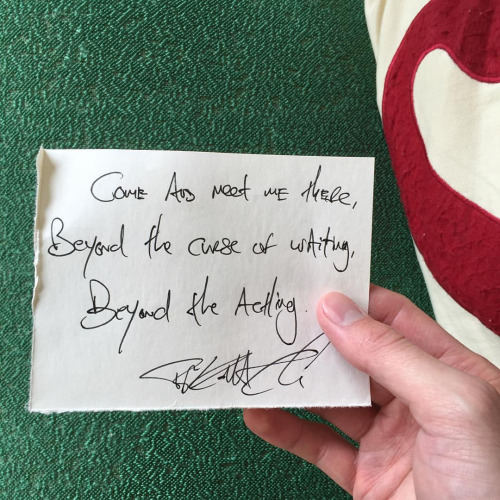 Come And meet me there,
Beyond the curse of writing,
Beyond the Actling.